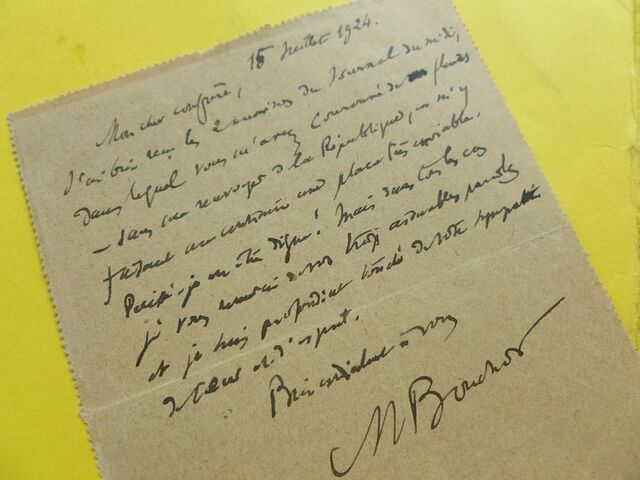 15 Juillet 1924.
Mon cher confrère,
J'ai bien reçu les 2 numéros du Journal du midi,
dans lequel vous m'avez couronné de fleurs
— sans me renvoyer à la République, en m'y
faisant au contraire une place très enviable.
Puissé-je en être digne! Mais dans tous les cas
je vous remercie de vos trop aimables paroles
et je suis profondément touché de votre sympathie
de cœur et d'esprit.
Bien cordialement à vous
M Bouchor